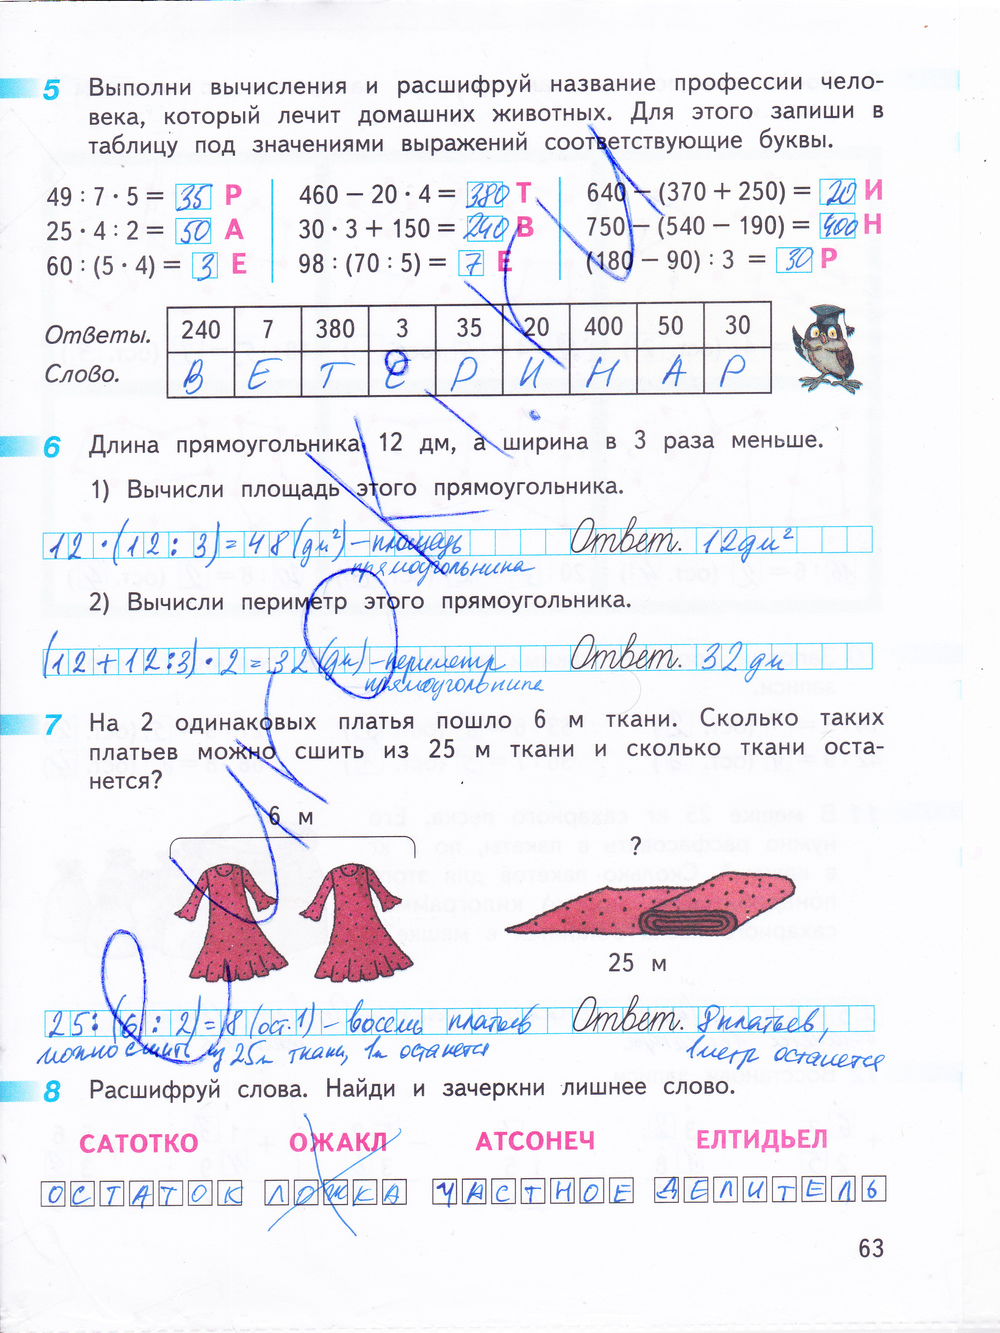 5 Выполни вычисления и расшифруй название профессии чело-
века, который лечит домашних животных. Для этого запиши в
таблицу под значениями выражений соответствующие буквы.
49 : 7 · 5 = 35 Р 460 − 20 · 4 = 380 Т 640 − (370 + 250) = 20 И
25 · 4 : 2 = 50 А 30 · 3 + 150 = 240 В 750 − (540 − 190) = 400 Н
60 : (5 · 4) = 3 Е 98 : (70 : 5) = 7 Е (180 − 90) : 3 = 30 Р
Ответы. 240 7 380 3 35 20 400 50 30
Слово. В Е Т Е Р И Н А Р
6 Длина прямоугольника 12 дм, а ширина в 3 раза меньше.
1) Вычисли площадь этого прямоугольника.
12 · (12 : 3) = 48 (дм²) – площадь Ответ. 12 дм²
прямоугольника
2) Вычисли периметр этого прямоугольника.
(12 + 12 : 3) · 2 = 32 (дм) – периметр Ответ. 32 дм
прямоугольнипа
7 На 2 одинаковых платья пошло 6 м ткани. Сколько таких
платьев можно сшить из 25 м ткани и сколько ткани оста-
нется?
6 м
?
25 м
25 : (6 : 2) = 8 (ост. 1) – восемь платьев Ответ. 8 платьев,
можно сшить из 25м ткани, 1м останется 1 метр останется
8 Расшифруй слова. Найди и зачеркни лишнее слово.
САТОТКО ОЖАКЛ АТСОНЕЧ ЕЛТИДЬЕЛ
ОСТАТОК ЛОЖКА ЧАСТНОЕ ДЕЛИТЕЛЬ
63